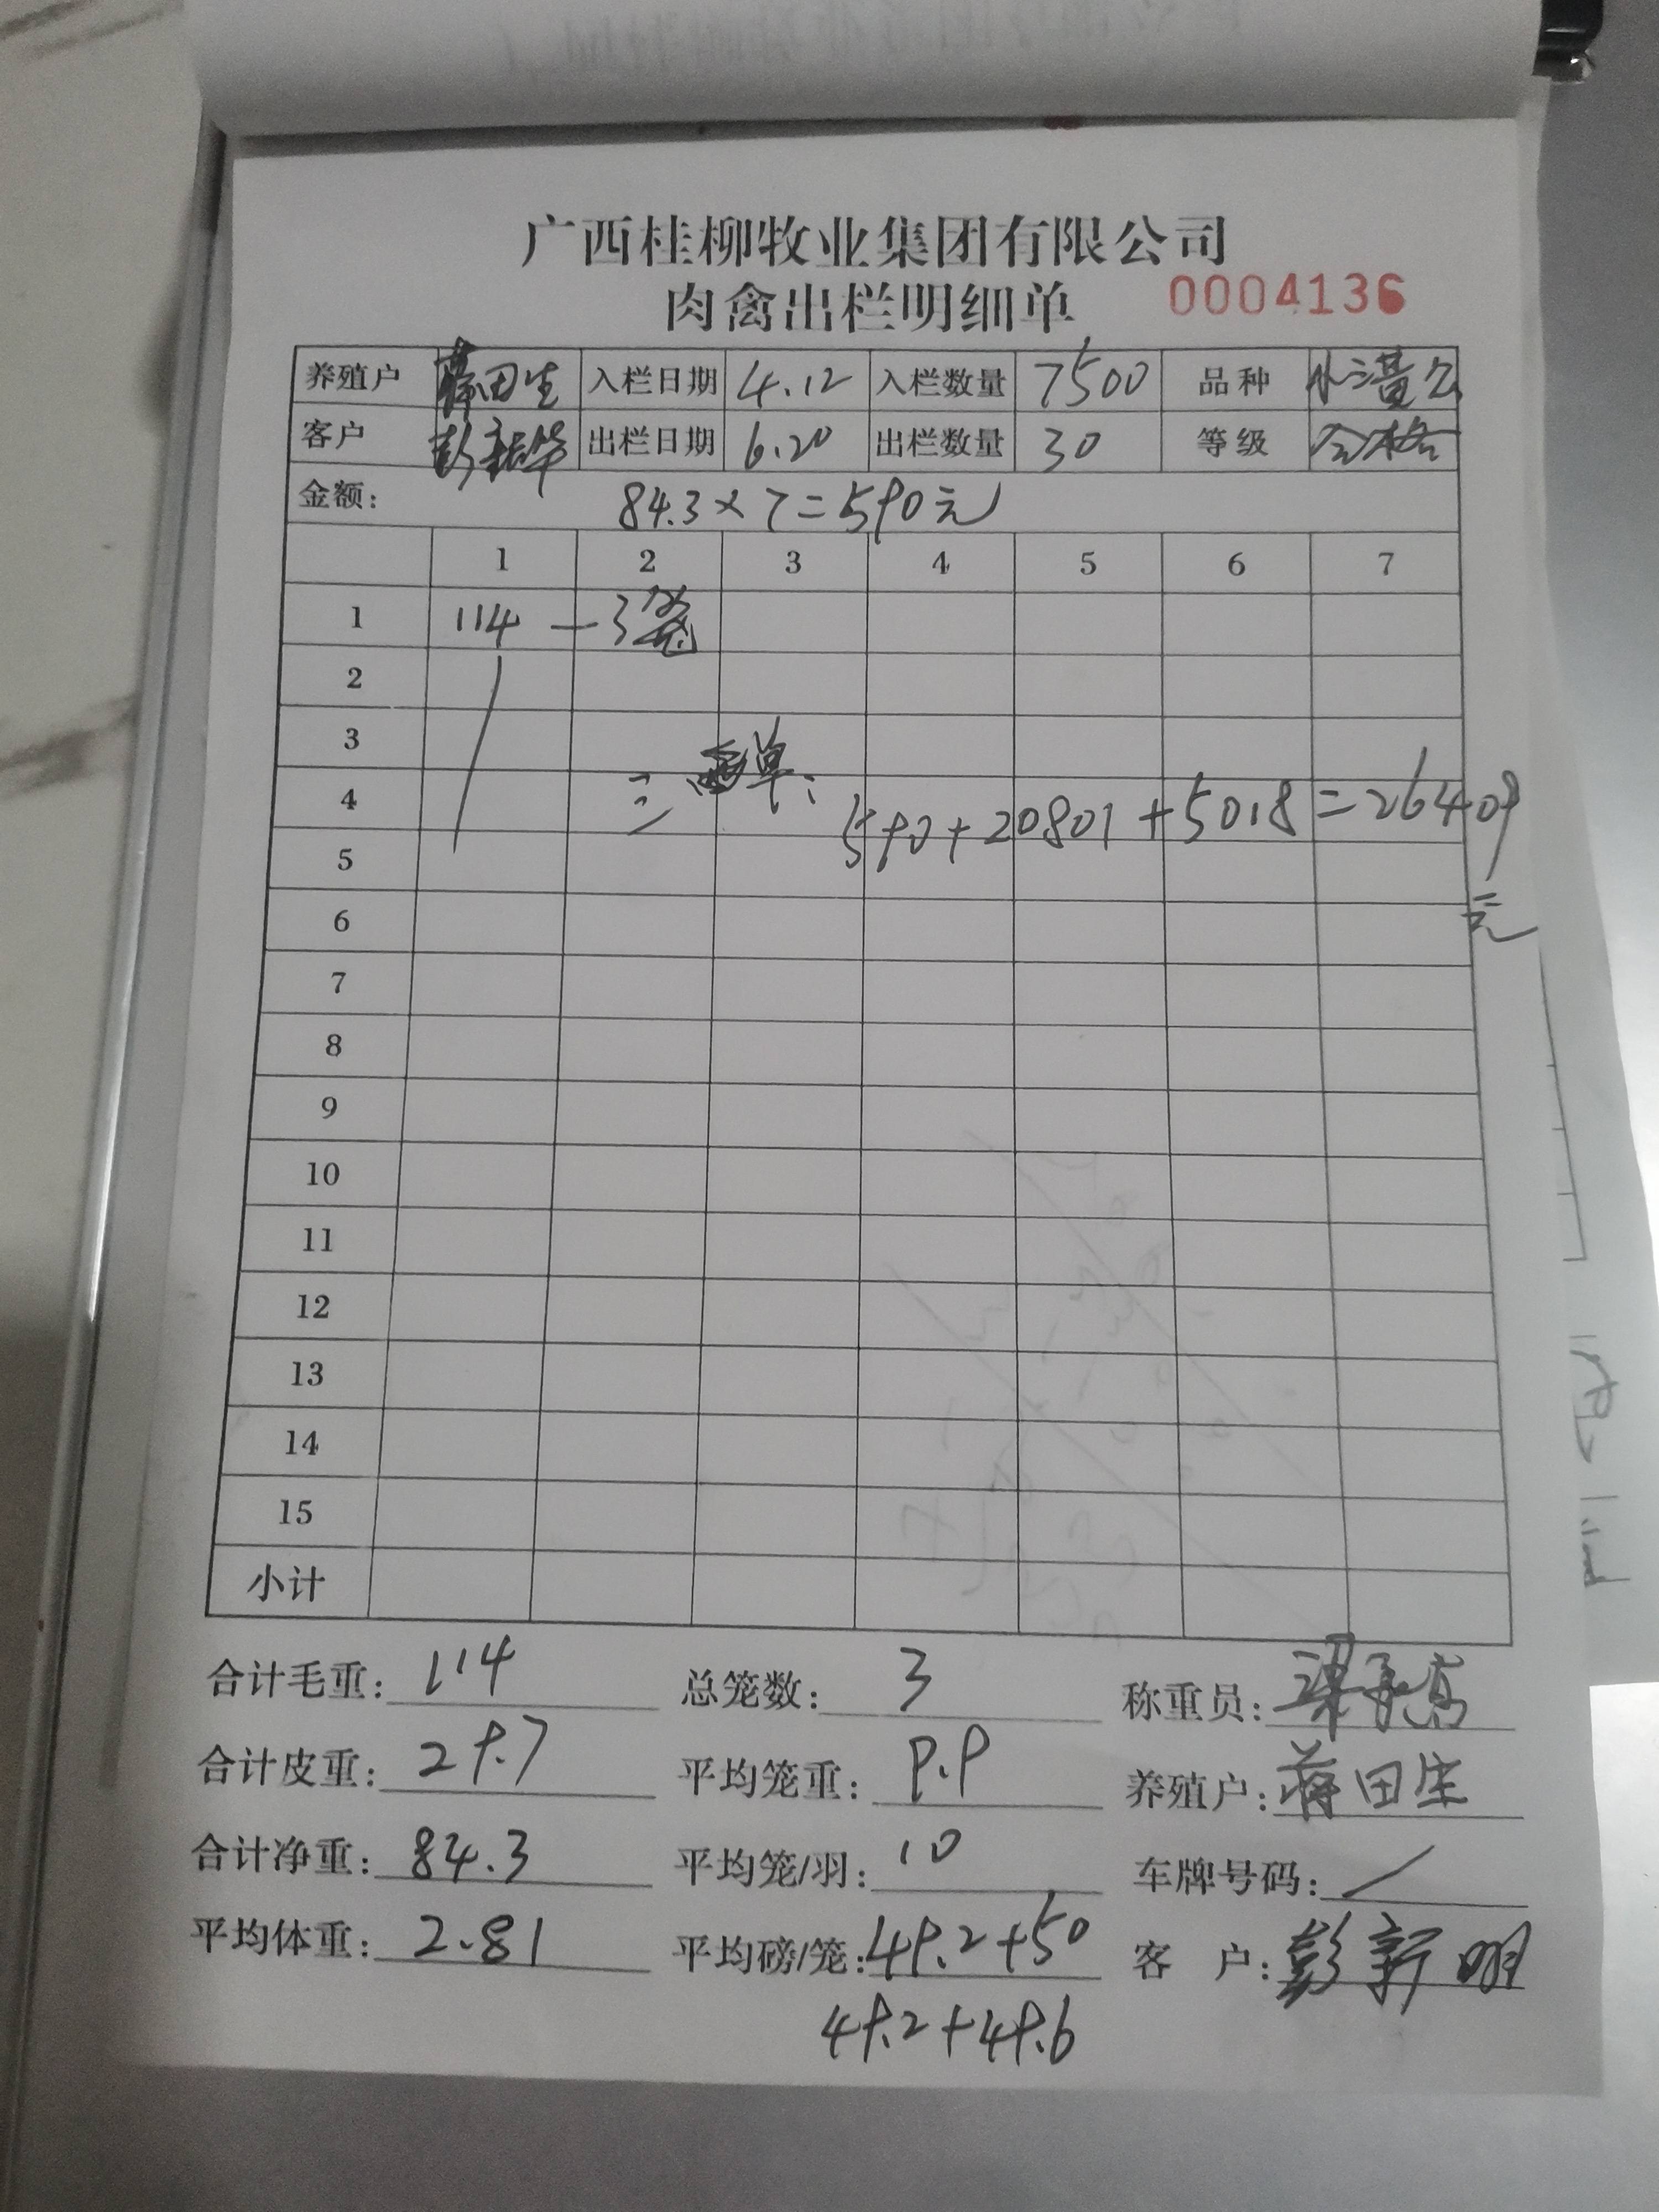 广西桂柳牧业集团有限公司
肉禽出栏明细单 0004136
养殖户 蒋田生 入栏日期 4.12 入栏数量 7500 品种
客户 出栏日期 6.20 出栏数量 30 等级 合格
金额: 84.3×7=590元
1 2 3 4 5 6 7
1 114 — 3笼
2
3
三 单:
4 590+20801+5018=26409
5
元
6
7
8
9
10
11
12
13
14
15
小计
合计毛重: 114 总笼数: 3 称重员:
合计皮重: 29.7 平均笼重: 9.9 养殖户: 蒋田生
合计净重: 84.3 平均笼/羽: 10 车牌号码: /
平均体重: 2.81 平均磅/笼: 49.2+50 客户: 彭新明
49.2+49.6